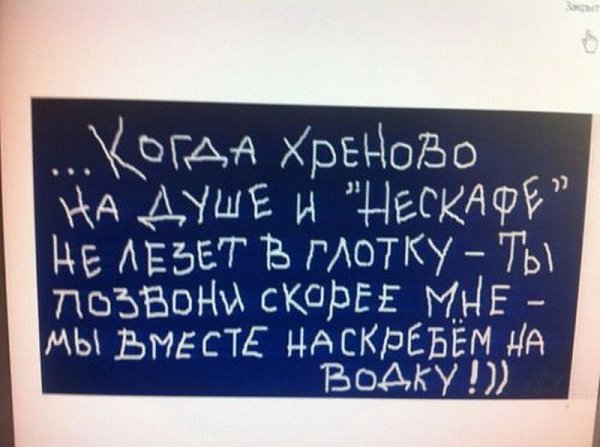 Закрыт
...Когда хреново
на душе и "Нескафе"
не лезет в глотку - Ты
позвони скорее мне -
мы вместе наскребём на
водку!))